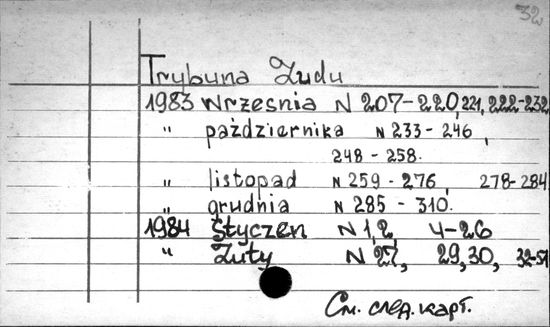 32
Trybuna Ludu
1983 Września N 207-220, 221, 222-232
" października N 233-246,
248-258.
" listopad N 259-276, 278-284
" grudnia N 285-310.
1984 Styczen N 1,2, 4-26
" Luty N 27, 29,30, 32-51
См. след. карт.